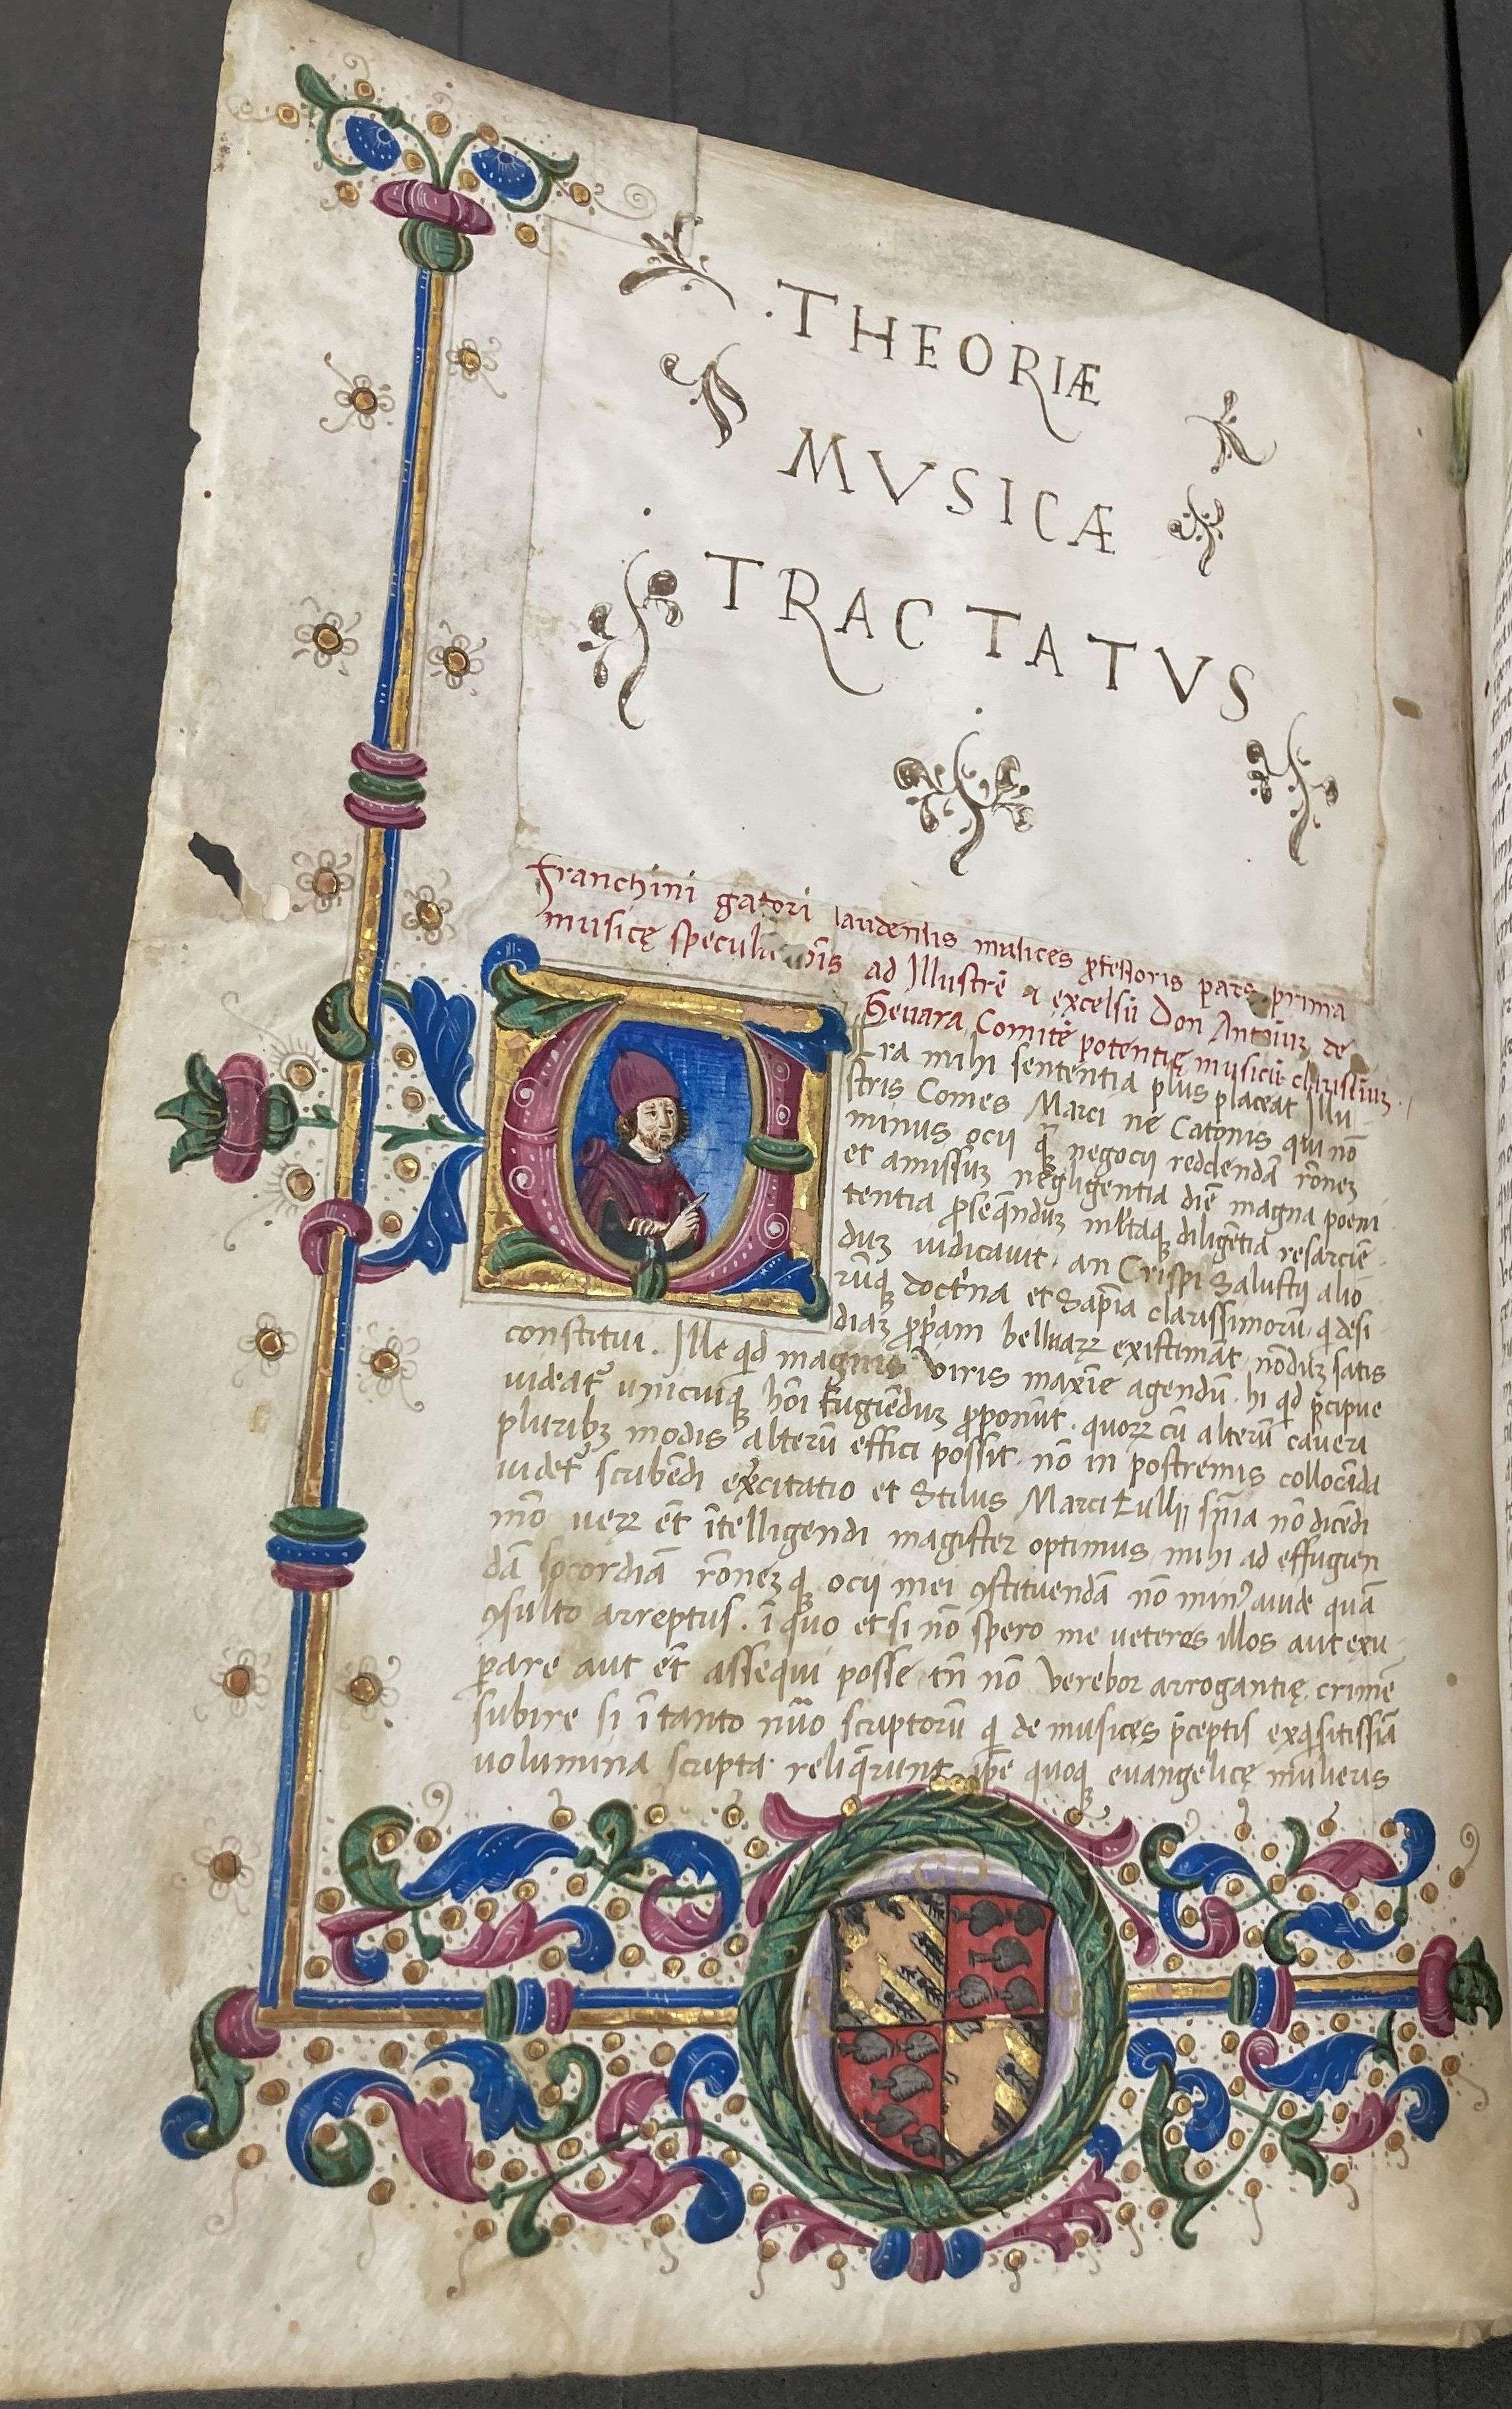 ·THEORIÆ
MVSICÆ
TRACTATVS
Franchini gafori laudensis musices ꝓfessoris pars prima
musicę speculationis ad Illustrē & excelsū Don Antoniuʒ de
Gevara Comitē potentię musicū clarissimuʒ.
Utra mihi sententia plus placeat Illu
stris Comes Marci ne Catonis qui nō
minus ocij negocij reddendā rōneʒ
et amissuʒ negligentia diē magna poeni
tentia diligētia resarciē
duʒ iudicavit, an Crispi Salustij alio
rūqꝫ doctrina et Sapīa clarissimorū, qͥ desi
diaʒ ꝓpam belluaꝝ existimāt, nōduʒ satis
constitui. Ille qͥd magnis viris maxīe agendū. hi qͥd pͥcipue
unicuiqꝫ hōi fugiēduʒ ꝓponūt. quoꝝ cū alterū caveri
pluribʒ modis alterū effici possit. nō in postremis collocāda
scribēdi exͬcitatio et Stilus Marci tullij snīa nō dicēdi
mō veꝝ ēt ītelligendi magister optimus mihi ad effugien
dā socordiā rōneʒqꝫ ocij mei ꝯstituendā nō minꝰ avide quā
ꝯsulto arreptus. ī quo et si nō spero me veteres illos aut exu
pare aut ēt assequi posse tn̄ nō verebor arrogantię crimē
subire si ī tanto nūo scriptorū qͥ de musices pͥceptis exqͥsitissīa
volumina scripta reliq̄runt ip̄e quoqꝫ evangelicę mulieris
CO
A G